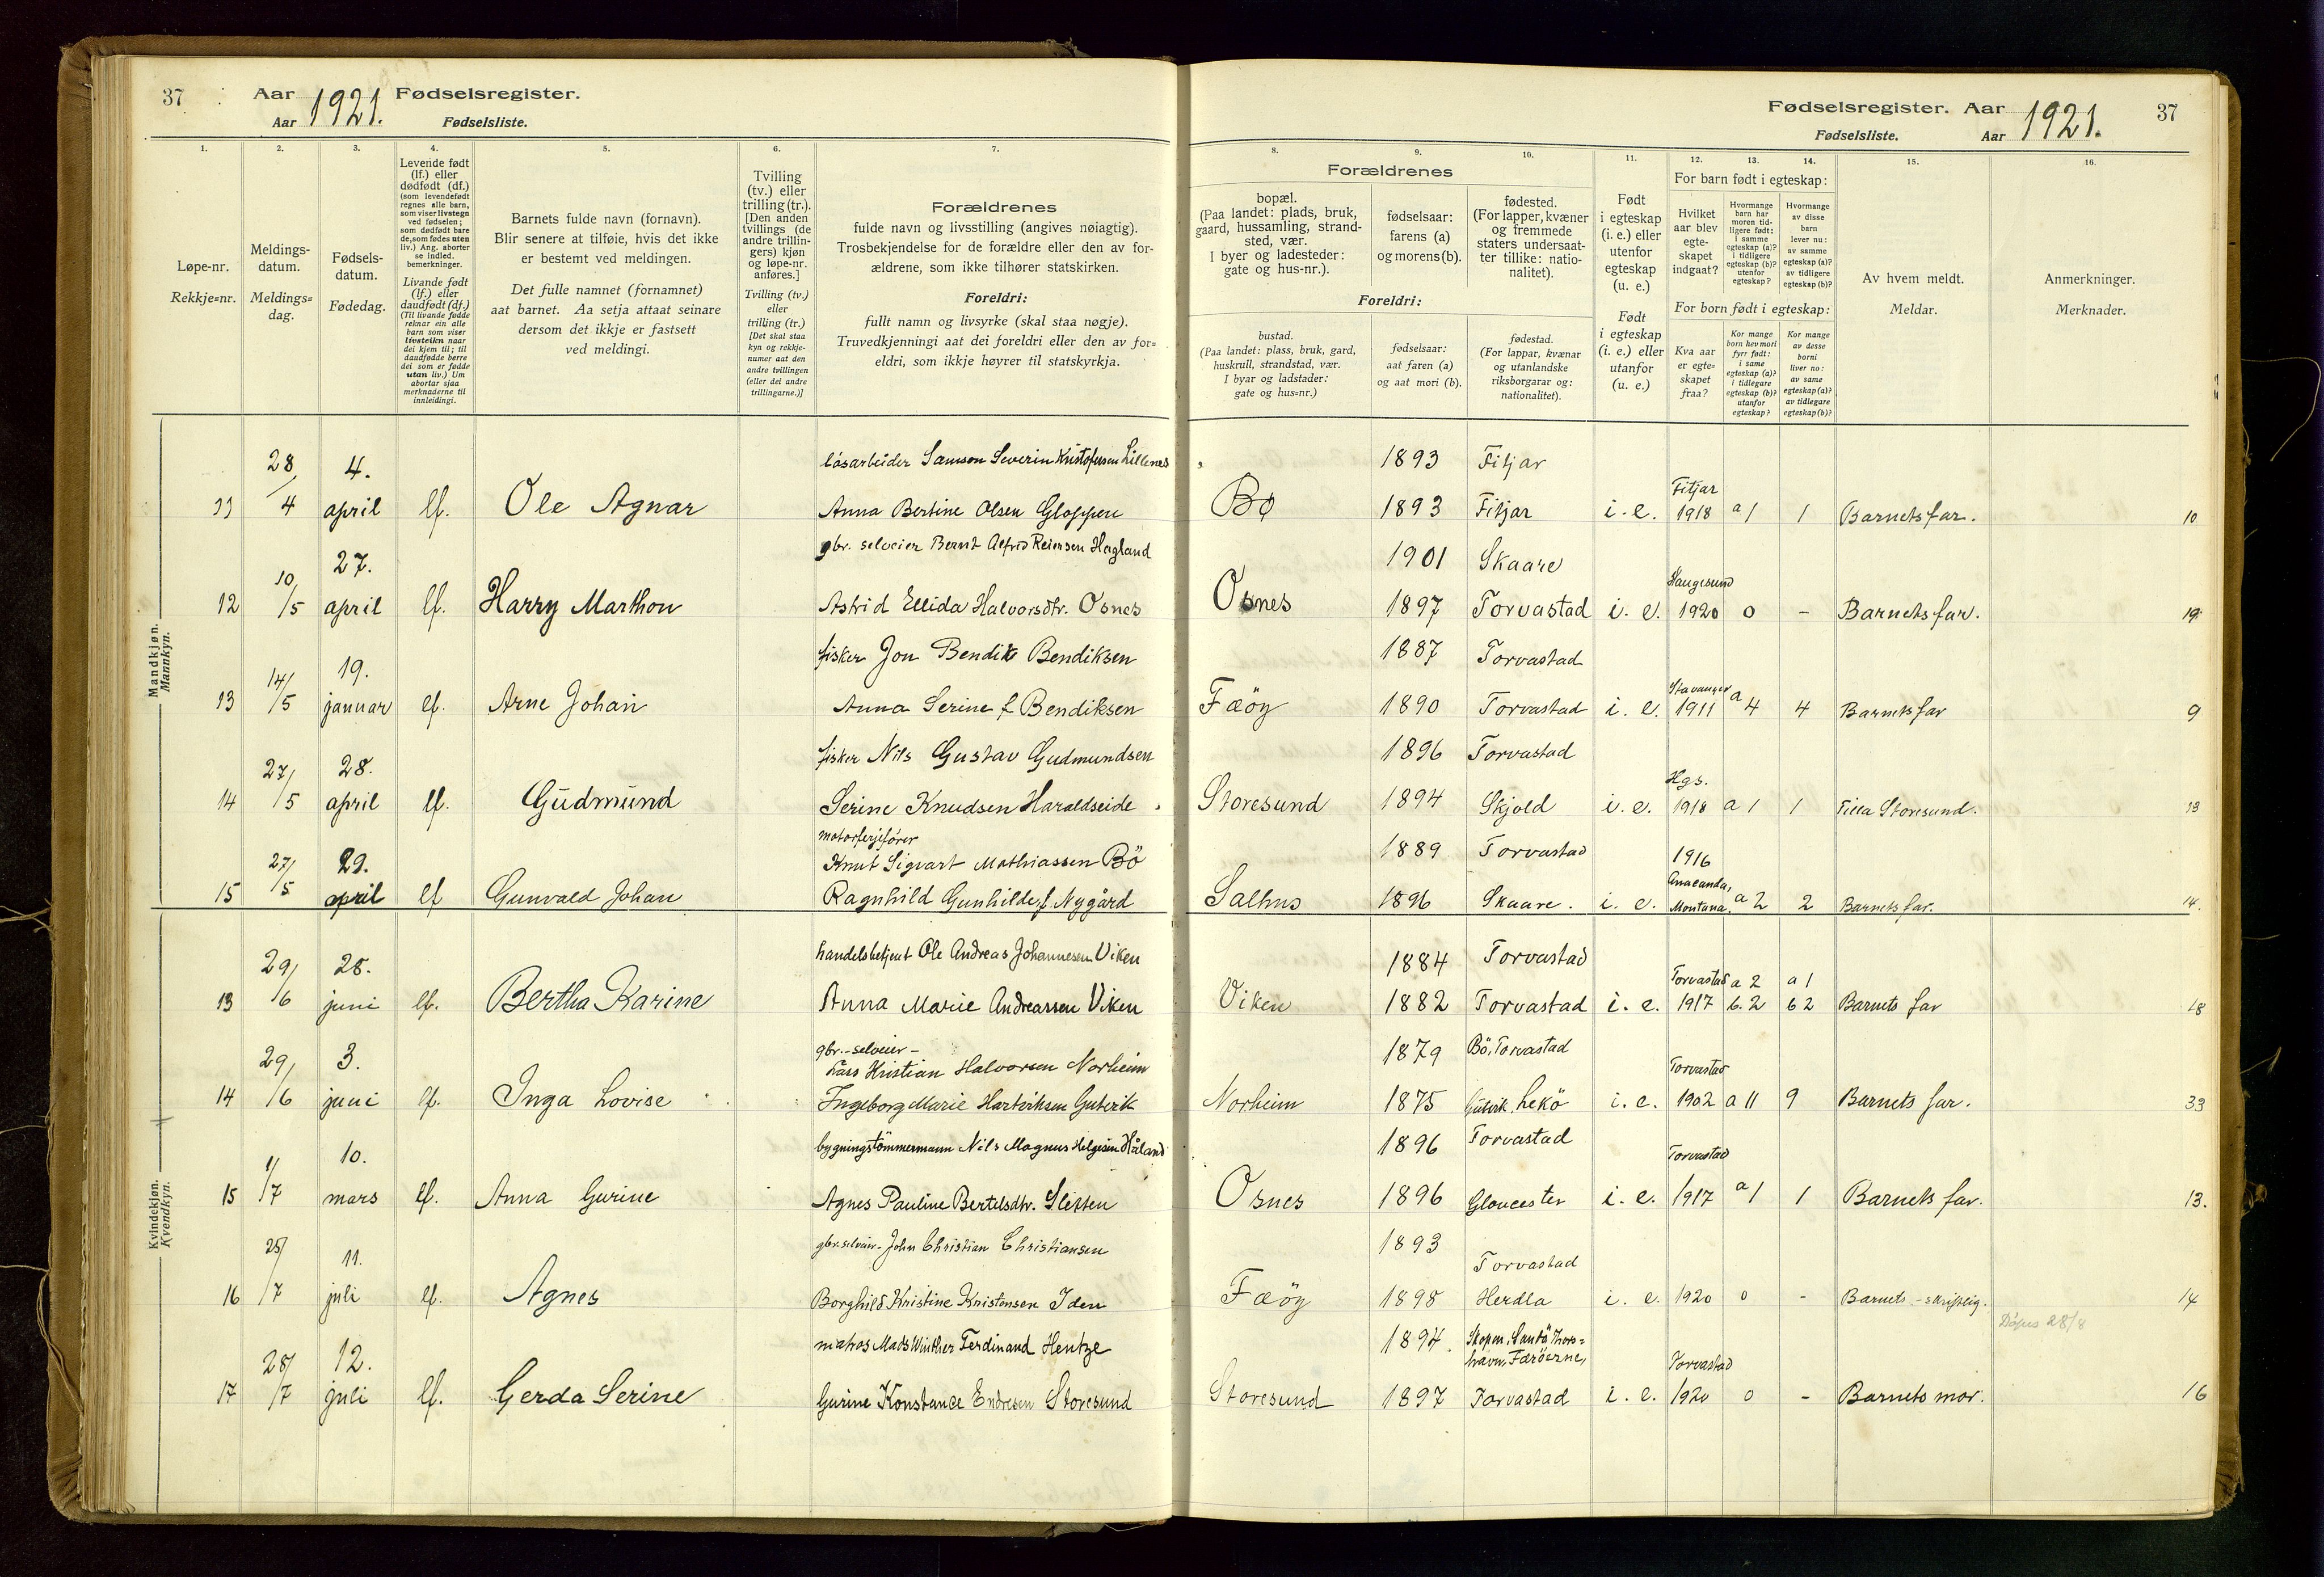 37 Aar 1921. Fødselsregister.
Aar Fødselsliste.
Fødselsregister. Aar 1921. 37
Fødselsliste. Aar
1. 2. 3. 4. 5. 6. 7.
Løpe-nr.
Rekkje=nr.
Meldings-
datum.
Meldings=
dag.
Fødsels-
datum.
Fødedag.
Levende født
(lf.) eller
dødfødt (df.)
(som levendefødt
regnes alle barn,
som viser livstegn
ved fødselen;
som dødfødt bare
de, som fødes uten
liv.) Ang. aborter
se indled.
bemerkninger.
Livande født
(lf.) eller
daudfødt (df.)
(Til livande fødde
reknar ein alle
barn som viser
livsteikn naar
dei kjem til; til
daudfødde berre
dei som er fødde
utan liv.) Um
abortar sjaa
merknaderne til
innleidingi.
Barnets fulde navn (fornavn).
Blir senere at tilføie, hvis det ikke
er bestemt ved meldingen.
Det fulle namnet (fornamnet)
aat barnet. Aa setja attaat seinare
dersom det ikkje er fastsett
ved meldingi.
Tvilling
(tv.) eller
trilling (tr.).
[Den anden
tvillings (de
andre trillin-
gers) kjøn
og løpe-nr.
anføres.]
Tvilling (tv.)
eller
trilling (tr.)
[Det skal staa
kyn og rekkje-
numer aat den
andre tvillingen
(eller dei andre
trillingarne.)]
Forældrenes
fulde navn og livsstilling (angives nøiagtig).
Trosbekjendelse for de forældre eller den av for-
ældrene, som ikke tilhører statskirken.
Foreldri:
fullt namn og livsyrke (skal staa nøgje).
Truvedkjenningi aat dei foreldri eller den av for=
eldri, som ikkje høyrer til statskyrkja.
8. 9. 10. 11. 12. 13. 14. 15. 16.
Forældrenes
bopæl.
(Paa landet: plads, bruk,
gaard, hussamling, strand-
sted, vær.
I byer og ladesteder:
gate og hus-nr.).
fødselsaar:
farens (a)
og morens (b).
fødested.
(For lapper, kvæner
og fremmede
staters undersaat-
ter tillike: natio-
nalitet).
Foreldri:
bustad.
(Paa landet: plass, bruk, gard,
huskrull, strandstad, vær.
I byar og ladstader:
gate og hus=nr.)
fødselsaar:
aat faren (a)
og aat mori (b).
fødestad.
(For lappar, kvænar
og utanlandske
riksborgarar og:
nationalitet).
Født
i egteskap
(i. e.) eller
utenfor
egteskap
(u. e.)
Født
i egteskap
(i. e.) eller
utanfor
(u. e.)
For barn født i egteskap:
Hvilket
aar blev
egte-
skapet
indgaat?
Hvormange
barn har
moren tid-
ligere født:
i samme
egteskap (a)?
i tidligere
egteskap (b)?
utenfor
egteskap?
Hvormange
av disse
barn
lever nu:
av samme
egteskap (a)?
av tidligere
egteskap (b)?
For born født i egteskap:
Kva aar
er egte=
skapet
fraa?
Kor mange
born hev mori
fyrr født:
i same
egteskap (a)?
i tidlegare
egteskap (b)?
utanfor
egteskap?
Kor mange
av desse
borni
liver no:
av same
egteskap (a)?
av tidlegare
egteskap (b)?
Av hvem meldt.
Meldar.
Anmerkninger.
Merknader.
Mandkjøn.
Mannkyn.
28 4. låsarbeider Samson Severin Kristofersen Lillenes 1893 Fitjar
11 /4 april lf. Ole Agnar Anna Bertine Olsen Gloppen Bø 1893 Fitjar i. e. Fitjar 1918 a 1 1 Barnets far. 10
10 27. gbr. selveier Bernt Alfred Reiersen Hagland 1901 Skaare
12 /5 april lf. Harry Marthon Astrid Ellida Halvorsdtr. Osnes Osnes 1897 Torvastad i. e. Haugesund 1920 0 - Barnets far. 19.
14/ 19. fisker Jon Bendik Bendiksen 1887 Torvastad
13 5 januar lf. Arne Johan Anna Serine f. Bendiksen Fæöy 1890 Torvastad i. e. Stavanger 1911 a 4 4 Barnets far 9
27/ 28. fisker Nils Gustav Gudmundsen 1896 Torvastad
14 5 april lf. Gudmund Serine Knudsen Haraldseide Storesund 1894 Skjold i. e. Hgs. 1918 a 1 1 Tilla Storesund. 13
motorferjefører
27/ 29. Knut Sigvart Mathiassen Bö 1889 Torvastad 1916
15 5 april lf Gunvald Johan Ragnhild Gunhilde f. Nygård Salhus 1896 Skaare. i. e. Anaconda, Montana. a 2 2 Barnets far. 14.
Kvindekjøn.
Kvendkyn.
29/ 25. handelsbetjent Ole Andreas Johannesen Viken 1884 Torvastad
13 6 juni lf. Bertha Karine Anna Marie Andreassen Viken Viken 1882 Torvastad i. e. Torvastad 1917 a 2 b. 2 a 1 b 2 Barnets far 18
gbr.-selveier-
29/ 3. Lars Kristian Halvorsen Norheim 1879 Bö, Torvastad
14 6 juni lf. Inga Lovise Ingeborg Marie Hartviksen Gutvik Norheim 1875 Gutvik, Lekö i. e. Torvastad 1902 a 11 9 Barnets far. 33
1/ 10. bygningstömmermann Nils Magnus Helgesen Håland 1896 Torvastad
15 7 mars lf. Anna Gurine Agnes Pauline Bertelsdtr. Sletten Osnes 1896 Gloucester i. e. Torvastad 1917 a 1 1 Barnets far. 13.
25/ 11. gbr. selveier- John Christian Christiansen 1893 Torvastad
16 7 juli lf. Agnes Borghild Kristine Kristensen Iden Fæöy 1898 Herdla i. e. 1920 0 - Barnets - skriftlig. 14
Döpes 28/8
28/ 12. matros Mads Winther Ferdinand Hentze 1894. Skopen, Sandö Thors=
havn, Færöerne,
17 7 juli lf. Gerda Serine Gurine Konstance Endresen Storesund Storesund 1897 Torvastad i. e. Torvastad 1920 0 - Barnets mor. 16